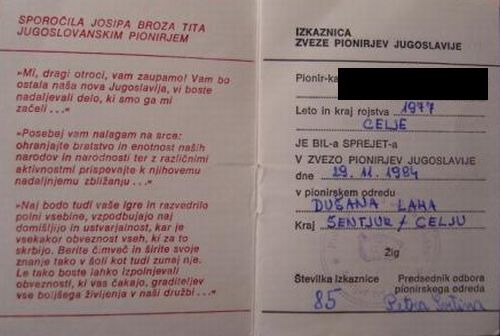 SPOROČILA JOSIPA BROZA TITA
JUGOSLOVANSKIM PIONIRJEM
»Mi, dragi otroci, vam zaupamo! Vam bo
ostala naša nova Jugoslavija, vi boste
nadaljevali delo, ki smo ga mi
začeli ...«
»Posebej vam nalagam na srce:
ohranjajte bratstvo in enotnost naših
narodov in narodnosti ter z različnimi
aktivnostmi prispevajte k njihovemu
nadaljnjemu zbližanju ...«
»Naj bodo tudi vaše igre in razvedrilo
polni vsebine, vzpodbujajo naj
domišljijo in ustvarjalnost, kar je
vsekakor obveznost vseh, ki za to
skrbijo. Berite čimveč in širite svoje
znanje tako v šoli kot tudi zunaj nje.
Le tako boste lahko izpolnjevali
obveznosti, ki vas čakajo, graditeljev
vse boljšega življenja v naši družbi ...«
IZKAZNICA
ZVEZE PIONIRJEV JUGOSLAVIJE
Pionir-ka
Leto in kraj rojstva 1977
CELJE
JE BIL-a SPREJET-a
V ZVEZO PIONIRJEV JUGOSLAVIJE
dne 29. 11. 1984
v pionirskem odredu
DUŠANA LAHA
Kraj ŠENTJUR / CELJU
žig
Številka izkaznice
85
Predsednik odbora
pionirskega odreda
Petra